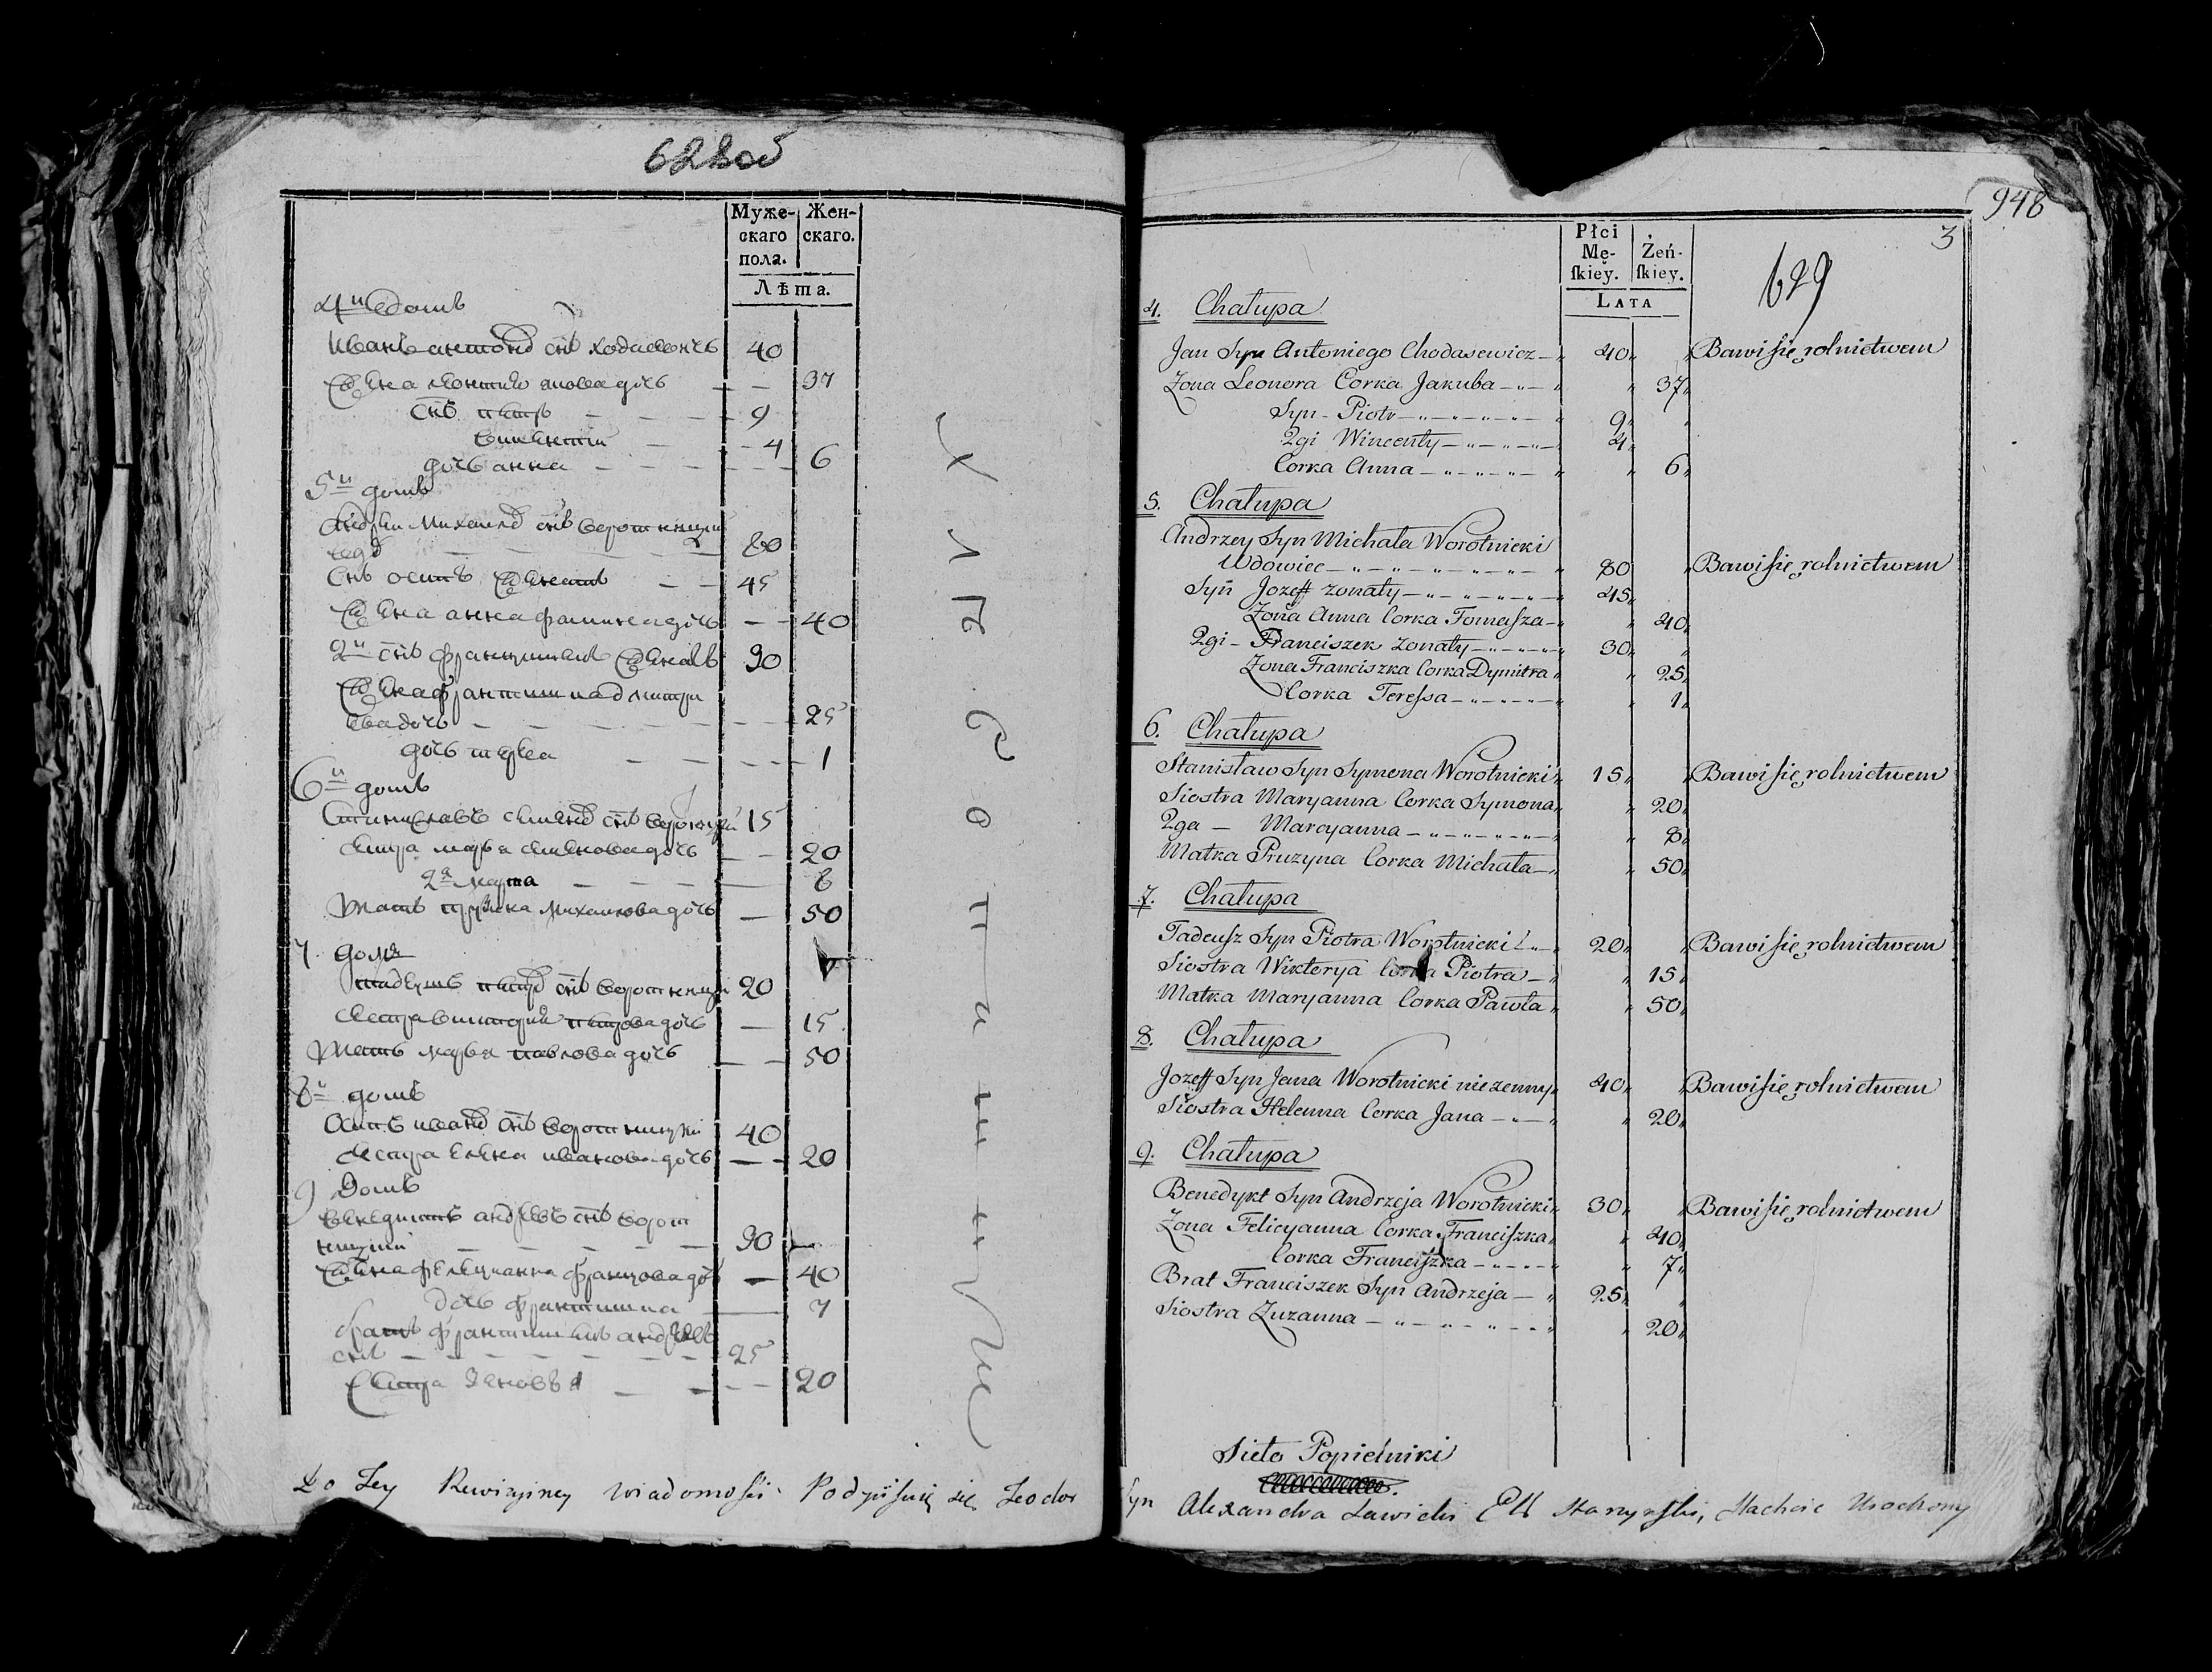 628об
Муже-
скаго
пола.
Жен-
скаго.
Лѣта.
4й домъ
Иванъ антонов снъ ходасевичъ 40
Жена 37
снъ петръ 9
викентий 4
дочь анна 6
5й домъ
Андрей Михайлов снъ воротницкий
80
снъ осипъ женатъ 45
Жена анна фомина дочь 40
2й снъ францишекъ женатъ 30
Жена францишка дмитри
ева дочь 25
дочь 1
6й домъ
Станиславъ снъ 15
сестра марья семенова дочь 20
2я марта 8
Мать Михайлова дочь 50
7 домъ
тадеушъ петров снъ воротницкий 20
сестра виктория петрова дочь 15
Мать марья павлова дочь 50
8й домъ
Осипъ иванов снъ воротницкий 40
сестра елена иванова дочь 20
9 домъ
венедиктъ андреевъ снъ ворот
ницкий 30
Жена фелицианна францова дочь 40
дочь францишка 7
братъ францишекъ андреевъ
снъ 25
сестра 20
Do Tey Rewizyiney Wiadomości Podpisuię się Teodor
948
3
629
Płci
Mę-
skiey.
Żeń-
skiey.
LATA
4. Chałupa
Jan Syn Antoniego Chodasewicz 40 Bawi się rolnictwem
Zona Leonora Corka Jakuba 37
Syn Piotr 9
2gi Wincenty 4
Corka Anna 6
5. Chałupa
Andrzey Syn Michała Worotnicki
Wdowiec 80 Bawi się rolnictwem
Syn Jozeff zonaty 45
Zona Anna Corka Tomasza 40
2gi Franciszek zonaty 30
Zona Franciszka Corka Dymitra 25
Corka Teressa 1
6. Chałupa
Stanisław Syn Symona Worotnicki 15 Bawi się rolnictwem
Siostra Maryanna Corka Symona 20
2ga Maryanna 8
Matka Pruzyna Corka Michała 50
7. Chałupa
Tadeusz Syn Piotra Worotnicki 20 Bawi się rolnictwem
Siostra Wiktorya Corka Piotra 15
Matka Maryanna Corka Pawła 50
8. Chałupa
Jozeff Syn Jana Worotnicki niezenny 40 Bawi się rolnictwem
Siostra Helenna Corka Jana 20
9. Chałupa
Benedykt Syn Andrzeja Worotnicki 30 Bawi się rolnictwem
Zona Felicyanna Corka Franciszka 40
Corka Franciszka 7
Brat Franciszek Syn Andrzeja 25
Siostra Zuzanna 20
Sieło Popielniki
Syn Alexandra Szlachcic Urodzony